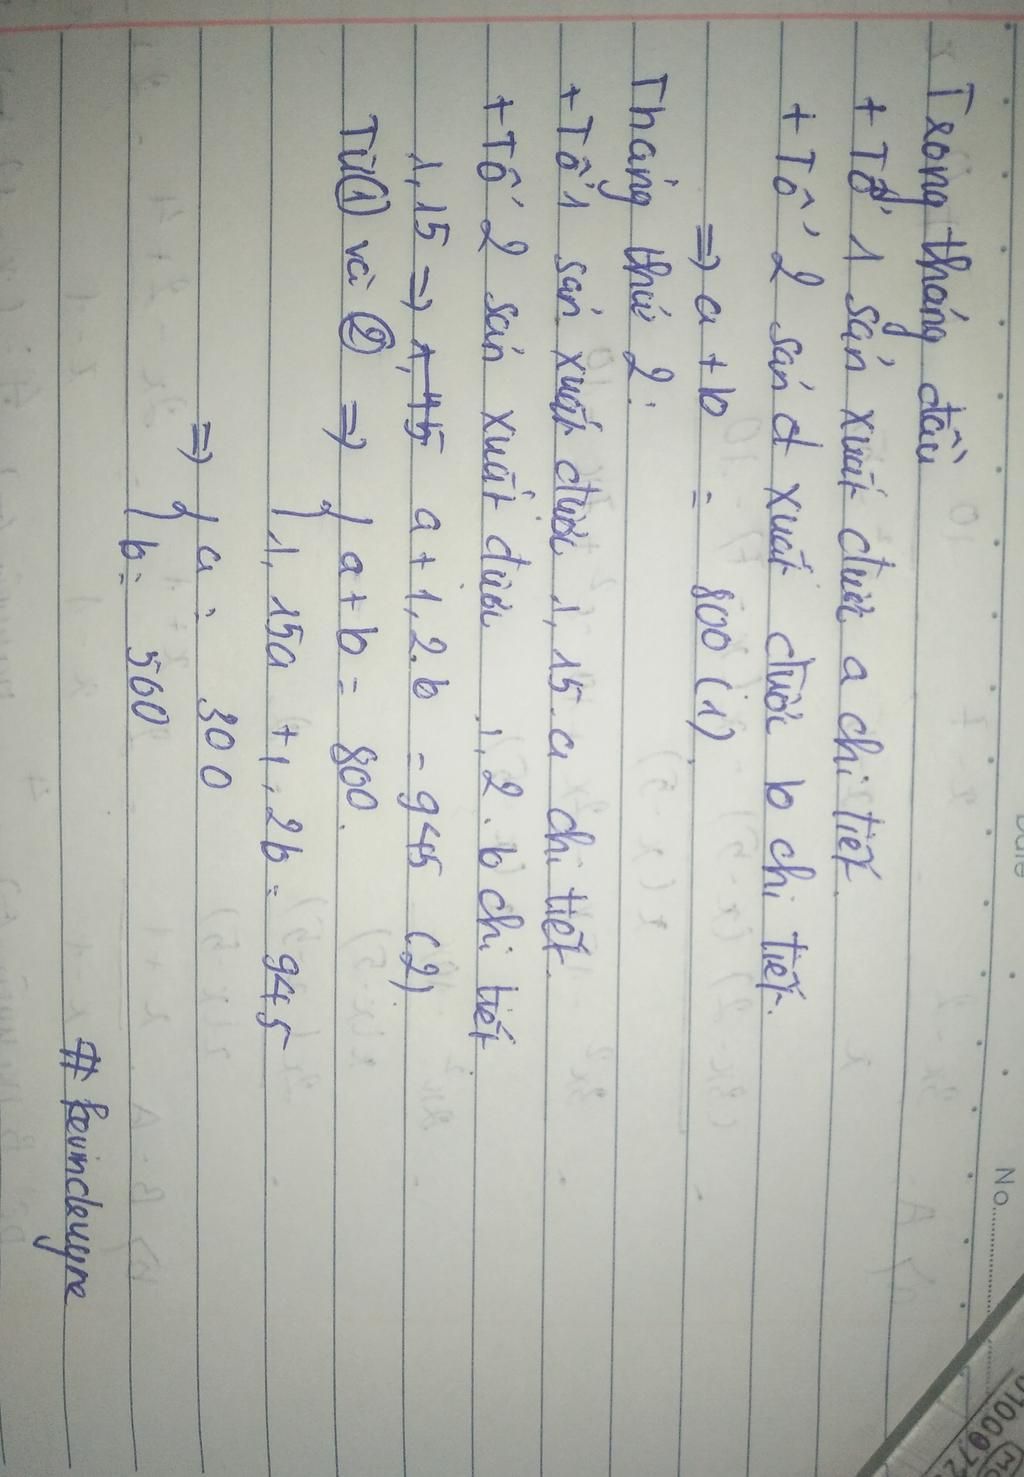 No.
Date
Trong tháng đầu
+ Tổ 1 sản xuất được a chi tiết.
+ Tổ 2 sản xuất được b chi tiết.
=> a + b = 800 (1)
Tháng thứ 2:
+ Tổ 1 sản xuất được 1,15.a chi tiết.
+ Tổ 2 sản xuất được 1,2.b chi tiết
1,15 => a + 1,2.b = 945 (2)
Từ (1) và (2) => { a + b = 800.
1,15a + 1,2b = 945
=> { a = 300
b = 500